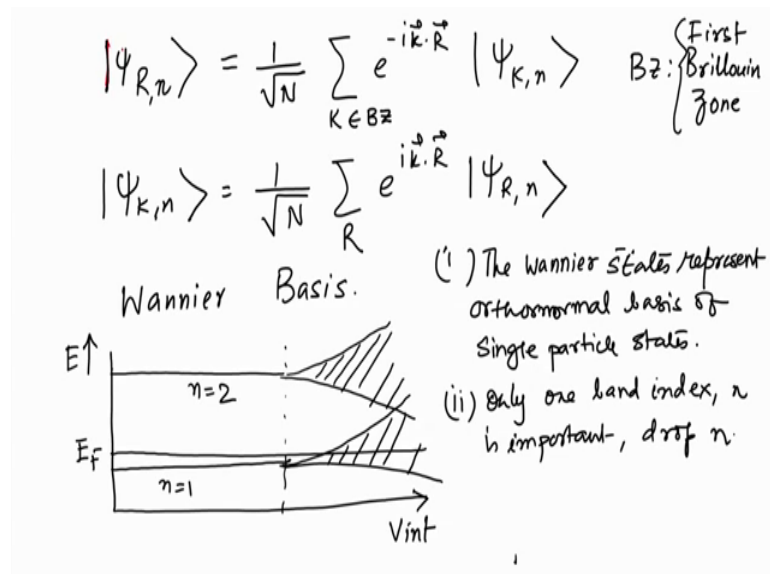 |ψ_{R,n}⟩ = 1/√N ∑_{K∈BZ} e^{-i\vec{k}·\vec{R}} |ψ_{K,n}⟩ BZ: { First
Brillouin
Zone
|ψ_{K,n}⟩ = 1/√N ∑_{R} e^{i\vec{k}·\vec{R}} |ψ_{R,n}⟩
Wannier Basis.
(i) The Wannier states represent
orthonormal basis of
single particle states.
(ii) Only one band index, n
is important, drop n.
E↑
n=2
E_F
n=1
Vint